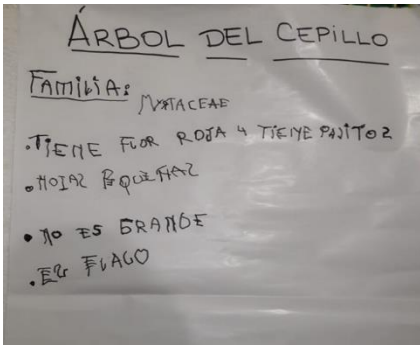 ÁRBOL DEL CEPILLO
FAMILIA:
MYRTACEAE
. TIENE FLOR ROJA Y TIENE PAJITOS
. HOJAS PEQUEÑAS
. NO ES GRANDE
. ES FLACO